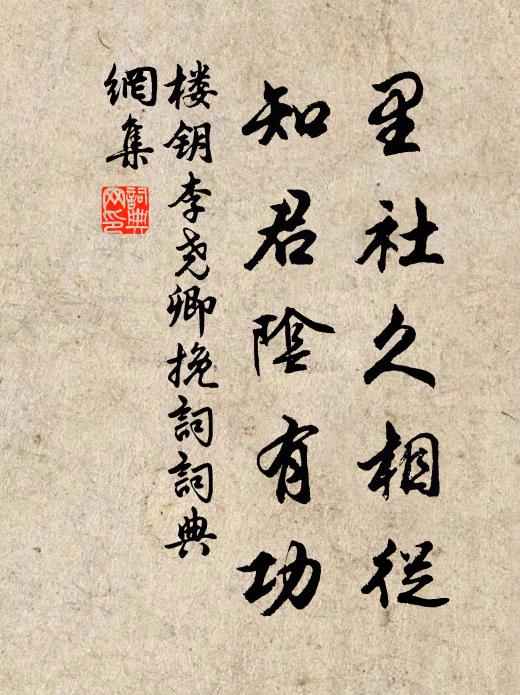 里社久相從
知君陰有功
楼钥李尧卿挽詞詞典
網集
詞典
网印